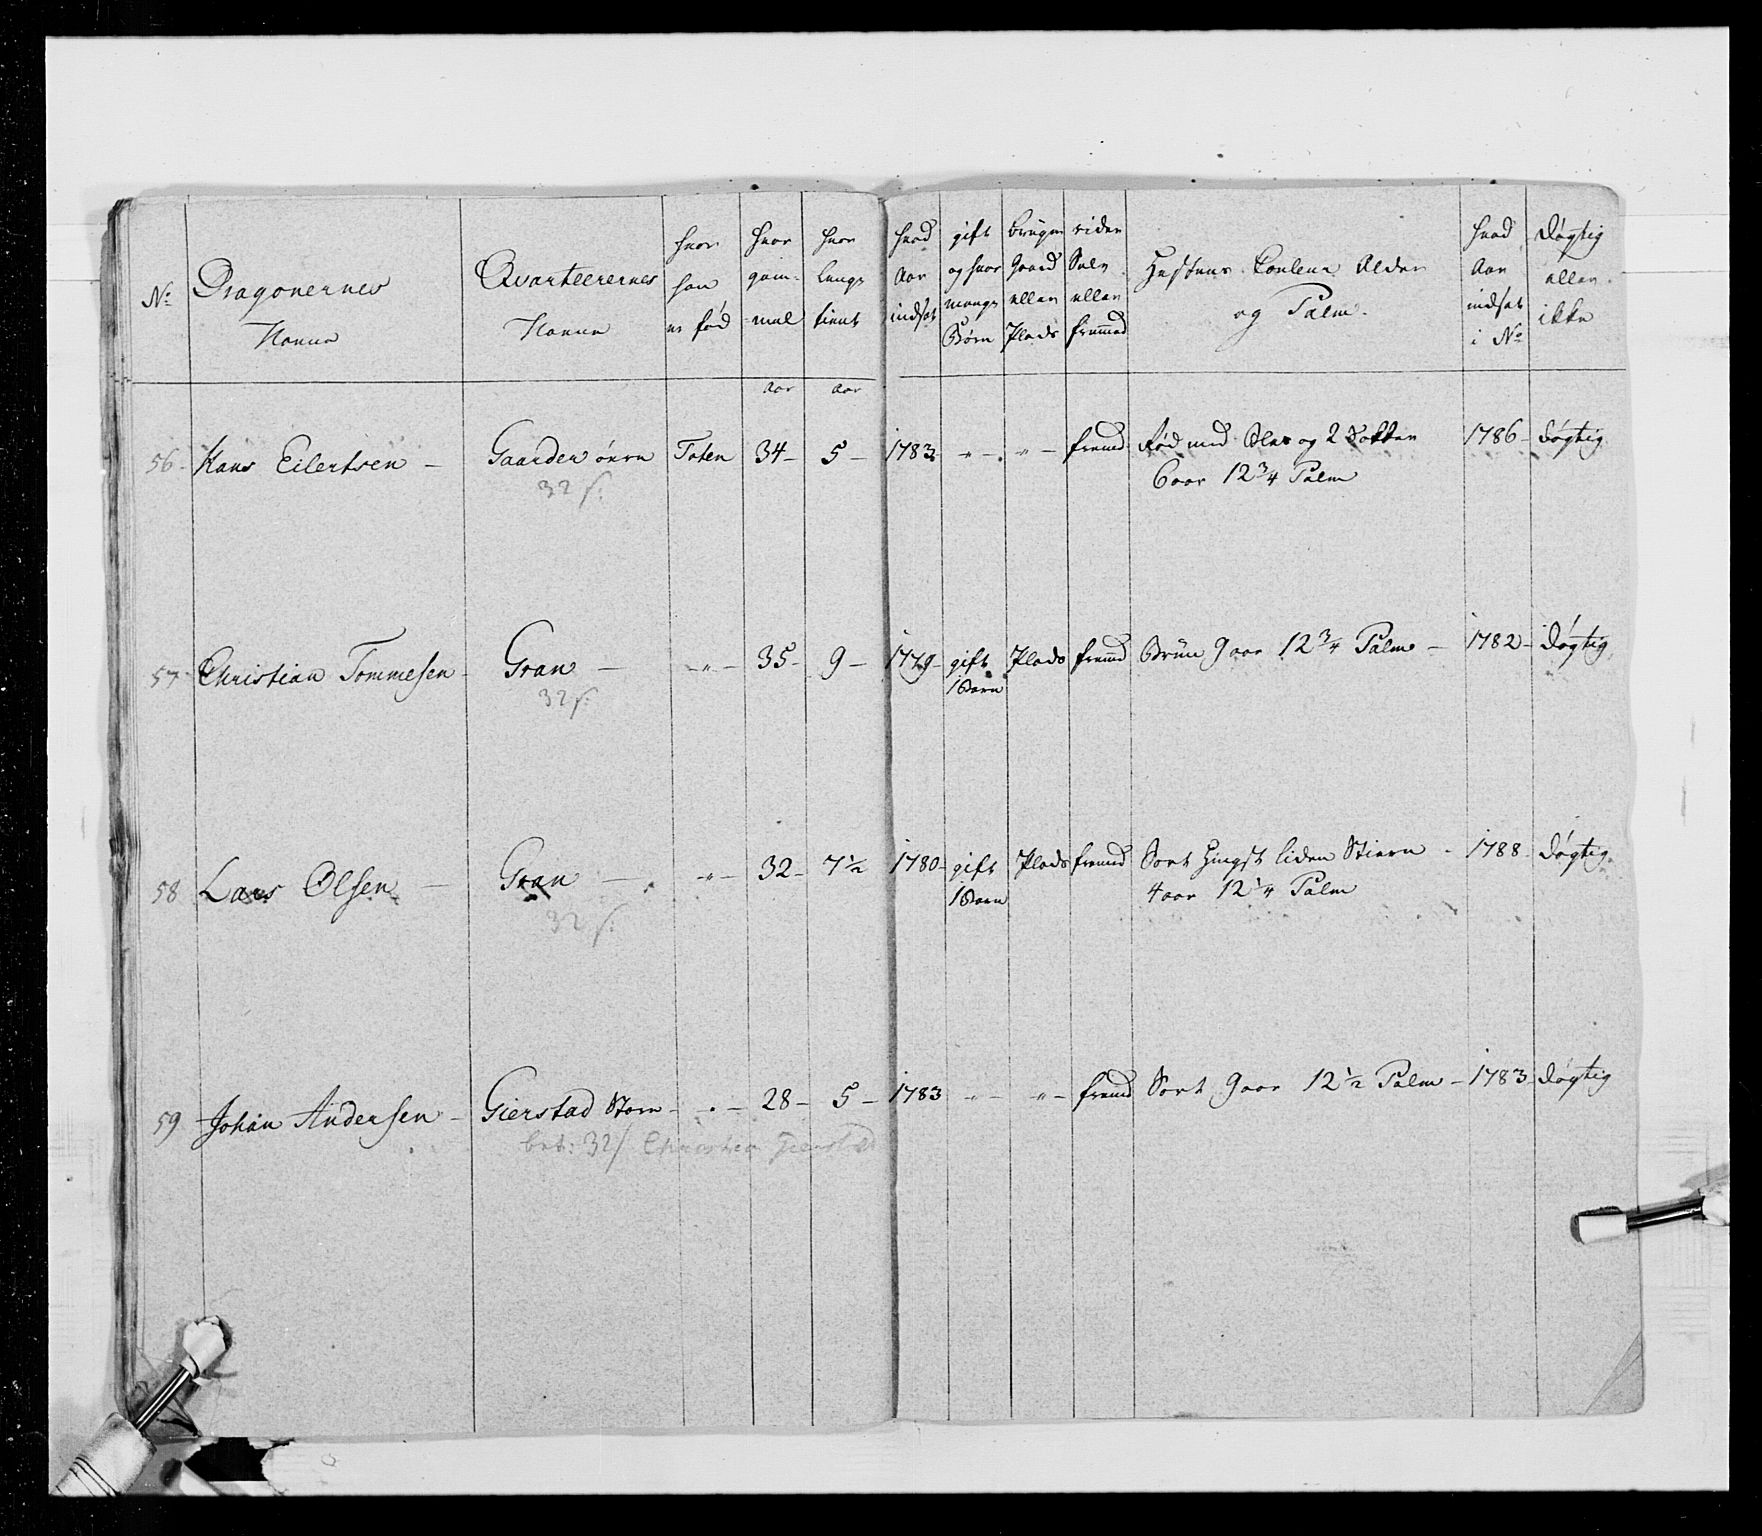 No Dragonernes Navne Qvarteerernes Navne hvor han er fød hvor gam- mel hvor længe tient hvad Aar indsat gift og hvor mange Børn bruger Gaard eller Plads rider Selv eller fremmed Hestens Couleur Alder og Palm. hvad Aar indsat i No døgtig eller ikke
aar aar
56 - Hans Eilertsen - Gaarder øvre Toten 34 - 5 - 1783 - " - " - fremd Rød med Bles og 2 Sokker 1786 - døgtig
32 s: 6 aar 12 3/4 Palm
57 Christian Tommesen - Gran - - " - 35 - 9 - 1779 - gift Plads fremd Brun 9 aar 12 3/4 Palm - 1782 - døgtig
32 s: 1 Barn
58 Lars Olsen - Gran - - " - 32 - 7 1/2 1780 - gift Plads fremd Sort Hingst liden Stiern - 1788 døgtig
32 s: 1 Barn 4 aar 12 1/4 Palm
59 Johan Andersen - Gierstad Store - - " - 28 - 5 - 1783 - " - " - fremd Sort 9 aar 12 1/2 Palm - 1783 døgtig
bet: 32 s